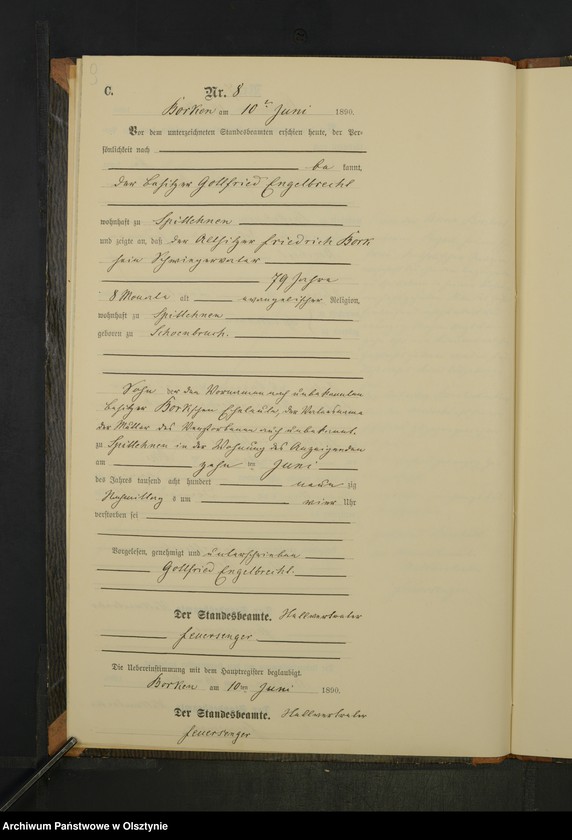 C.
Nr. 8
Borken am 10ten Juni 1890.
Vor dem unterzeichneten Standesbeamten erschien heute, der Per-
sönlichkeit nach
be kannt,
der Besitzer Gottfried Engelbrecht
wohnhaft zu Spittehnen
und zeigte an, daß der Altsitzer Friedrich Bork
sein Schwiegervater
79 Jahre
8 Monate alt evangelischer Religion,
wohnhaft zu Spittehnen
geboren zu Schoenbruch.
Sohn der den Vornamen nach unbekannten
Besitzer Bork'schen Eheleute, der Vatersname
der Mutter des Verstorbenen auch unbekannt.
zu Spittehnen in der Wohnung des Anzeigenden
am zehn ten Juni
des Jahres tausend acht hundert neun zig
Nachmittag s um vier Uhr
verstorben sei
Vorgelesen, genehmigt und unterschrieben
Gottfried Engelbrecht.
Der Standesbeamte. Stellvertreter
Feuersenger
Die Uebereinstimmung mit dem Hauptregister beglaubigt.
Borken am 10ten Juni 1890.
Der Standesbeamte. Stellvertreter
Feuersenger
Archiwum Państwowe w Olsztynie